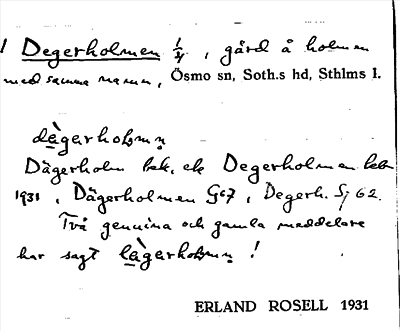 1 Degerholmen 1/4, gård å holmen
med samma namn, Ösmo sn, Soth.s hd, Sthlms l.
dägerholmn
Dägerholm bek. ek Degerholmen
1931, Dägerholmen G67, Degerh. Sj 62.
Två genuina och gamla meddelare
har sagt lägerholmn!
ERLAND ROSELL 1931